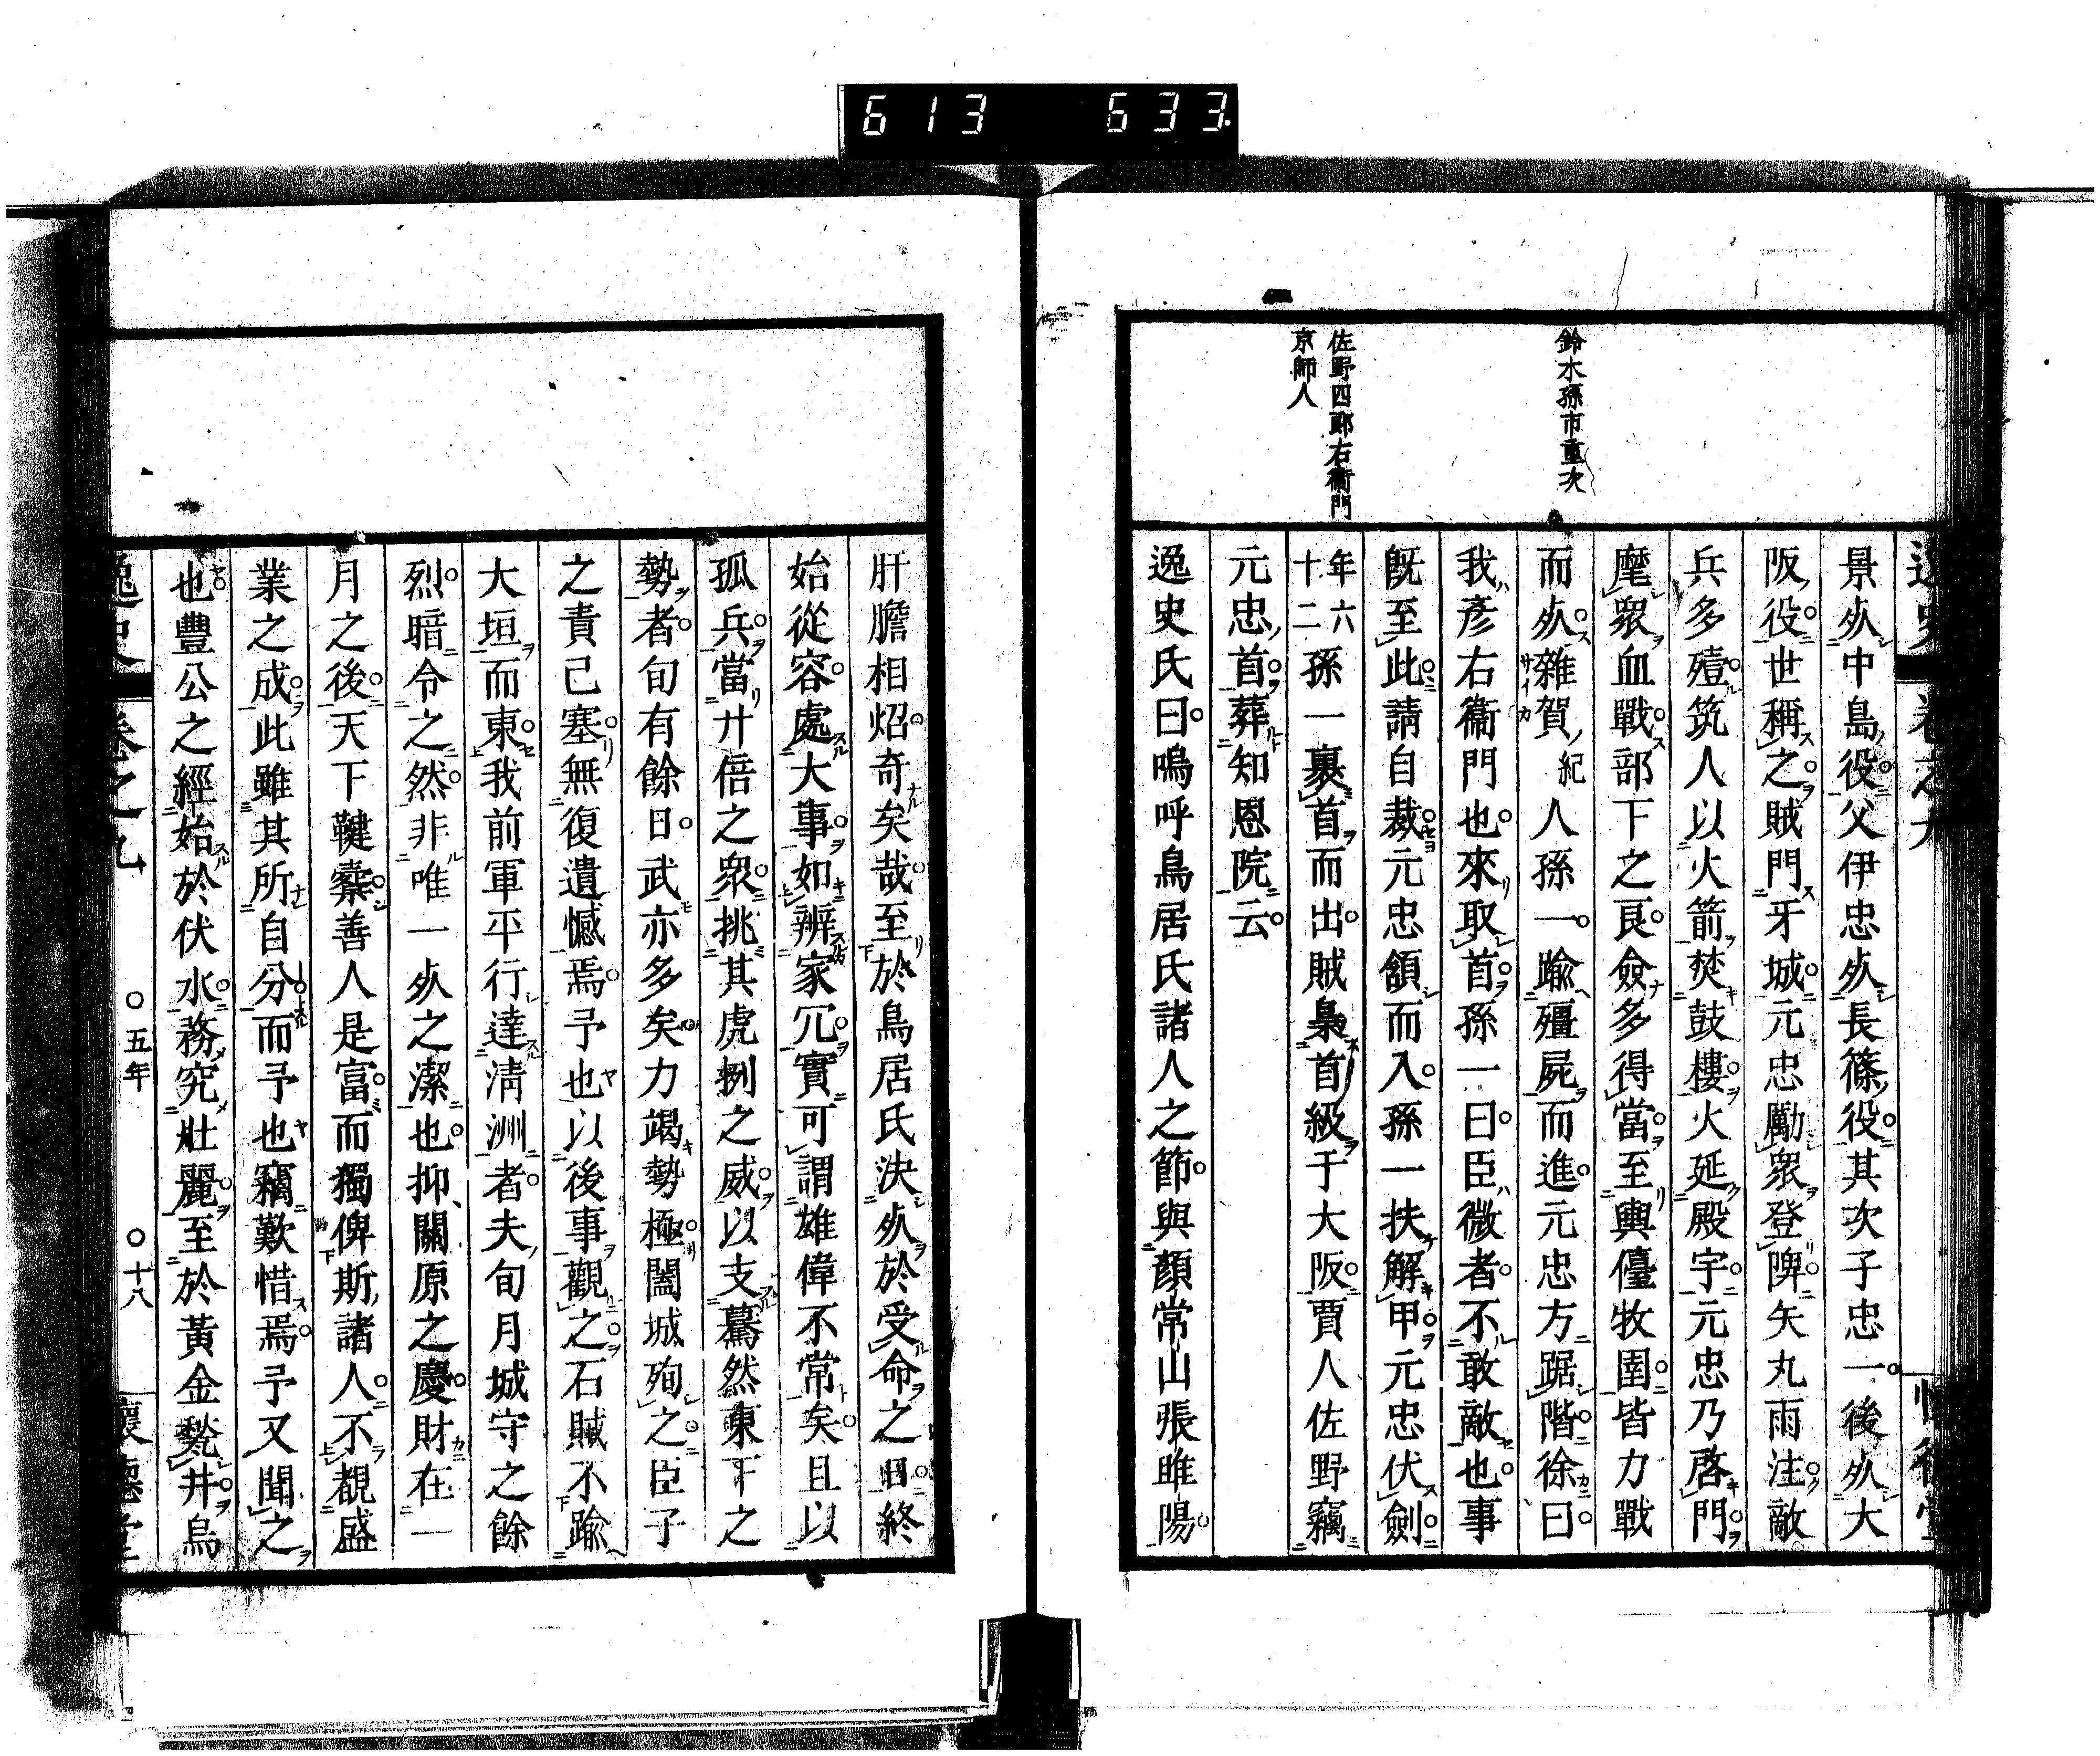 613 633
逸史 卷之九 懷德堂
鈴木孫市重次
佐野四郎右衞門
京師人
景㱔中島役父伊忠㱔長篠役其次子忠一後㱔大
阪役世稱之賊門牙城元忠勵衆登陴矢丸雨注敵
兵多殪筑人以火箭焚鼓樓火延殿宇元忠乃啓門
麾衆血戰部下之良僉多得當至輿儓牧圉皆力戰
而㱔雜賀紀人孫一踰殭屍而進元忠方踞階徐曰
我彦右衞門也來取首孫一曰臣微者不敢敵也事
旣至此請自裁元忠領而入孫一扶解甲元忠伏劍
年六十二孫一裹首而出賊梟首級于大阪賈人佐野竊
元忠首葬知恩院云
逸史氏曰嗚呼鳥居氏諸人之節與顏常山張睢陽
肝膽相炤奇矣哉至於鳥居氏決㱔於受命之日終
始從容處大事如辨家冗實可謂雄偉不常矣且以
孤兵當廾倍之衆挑其虎捌之威以支驀然東下之
勢者旬有餘日武亦多矣力竭勢極闔城殉之臣子
之責已塞無復遺憾焉予也以後事觀之石賊不踰
大垣而東我前軍平行達淸洲者夫旬月城守之餘
烈暗令之然非唯一㱔之潔也抑關原之慶財在一
月之後天下鞬櫜善人是富而獨俾斯諸人不覩盛
業之成此雖其所自分而予也竊歎惜焉予又聞之
也豐公之經始於伏水務究壯麗至於黃金甃井烏
逸史 卷之九 ○五年 ○十八 懷德堂